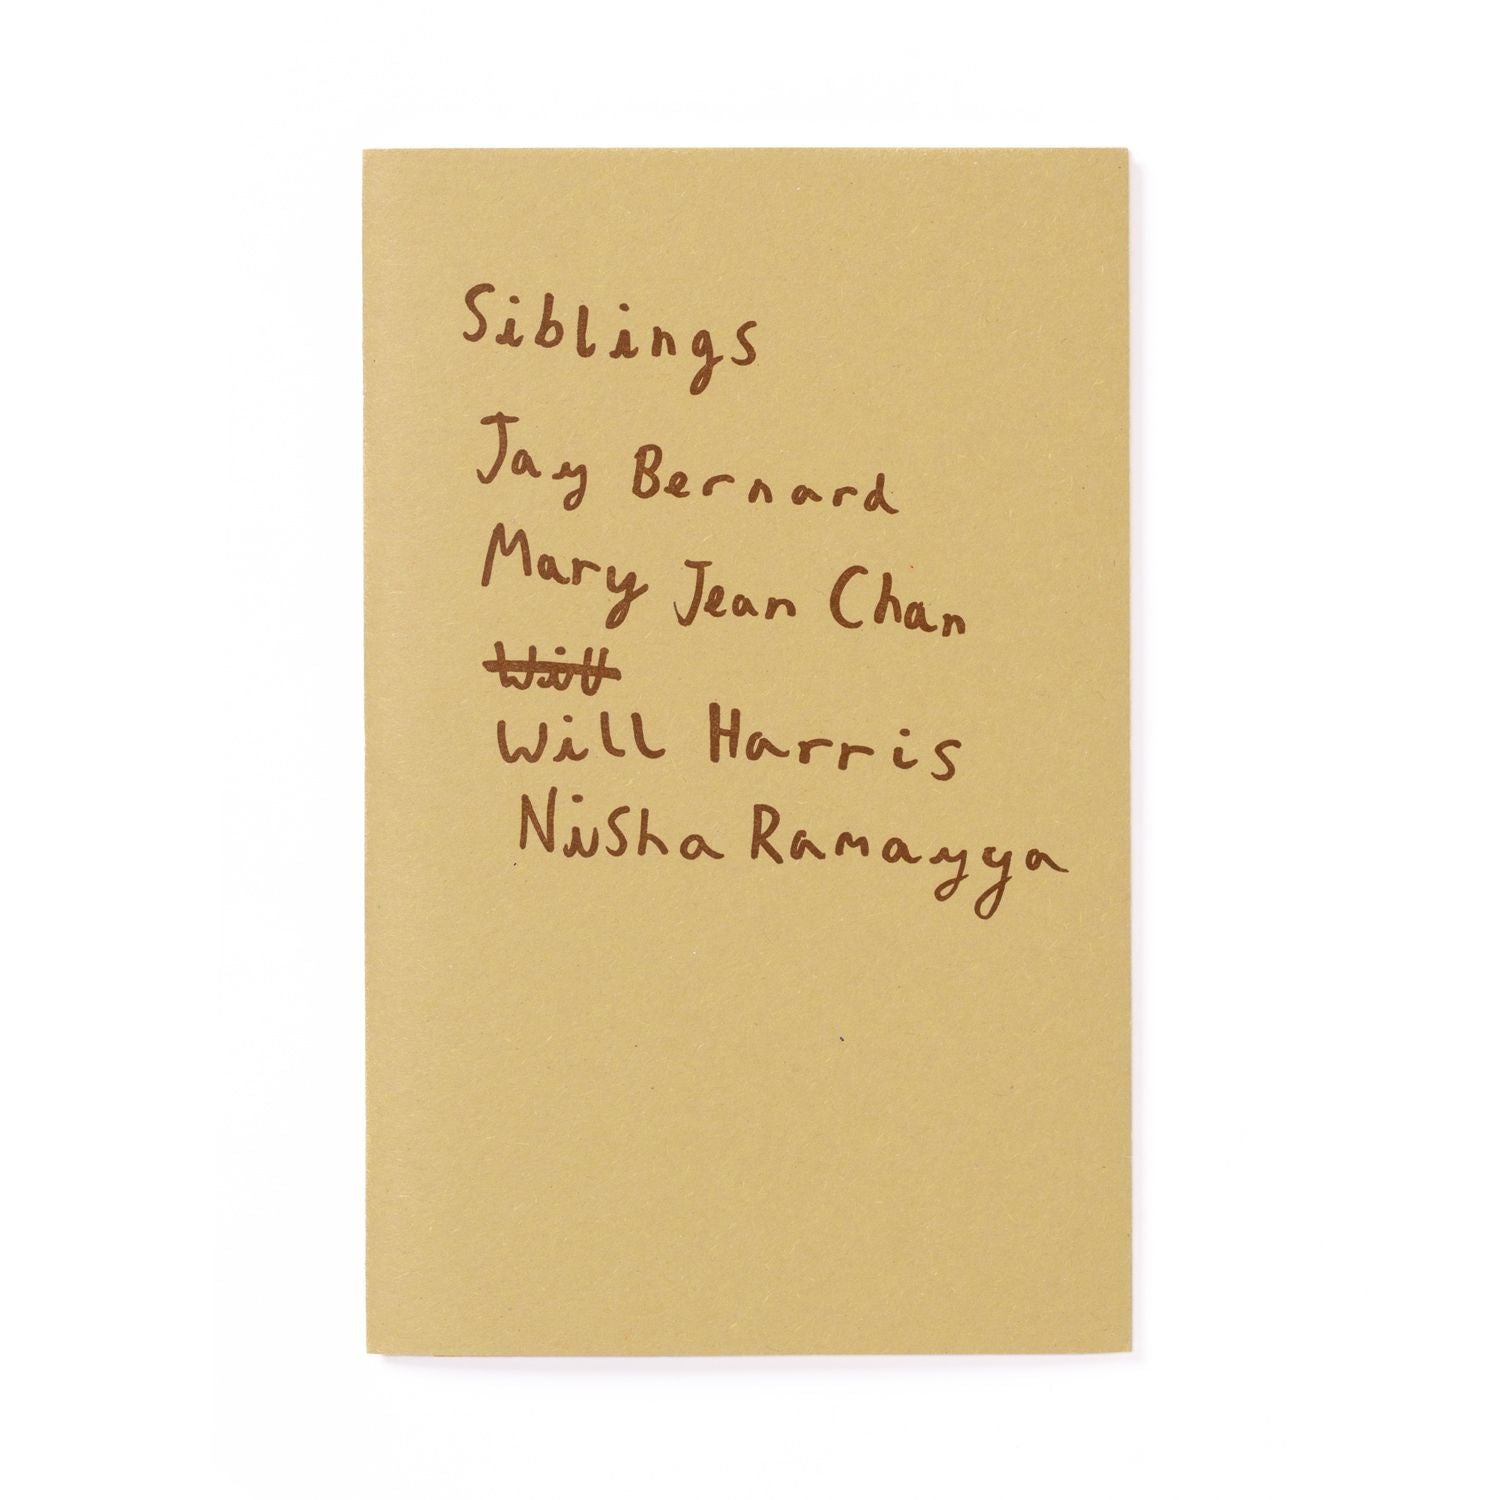 Siblings
Jay Bernard
Mary Jean Chan
Will
Will Harris
Nisha Ramayya